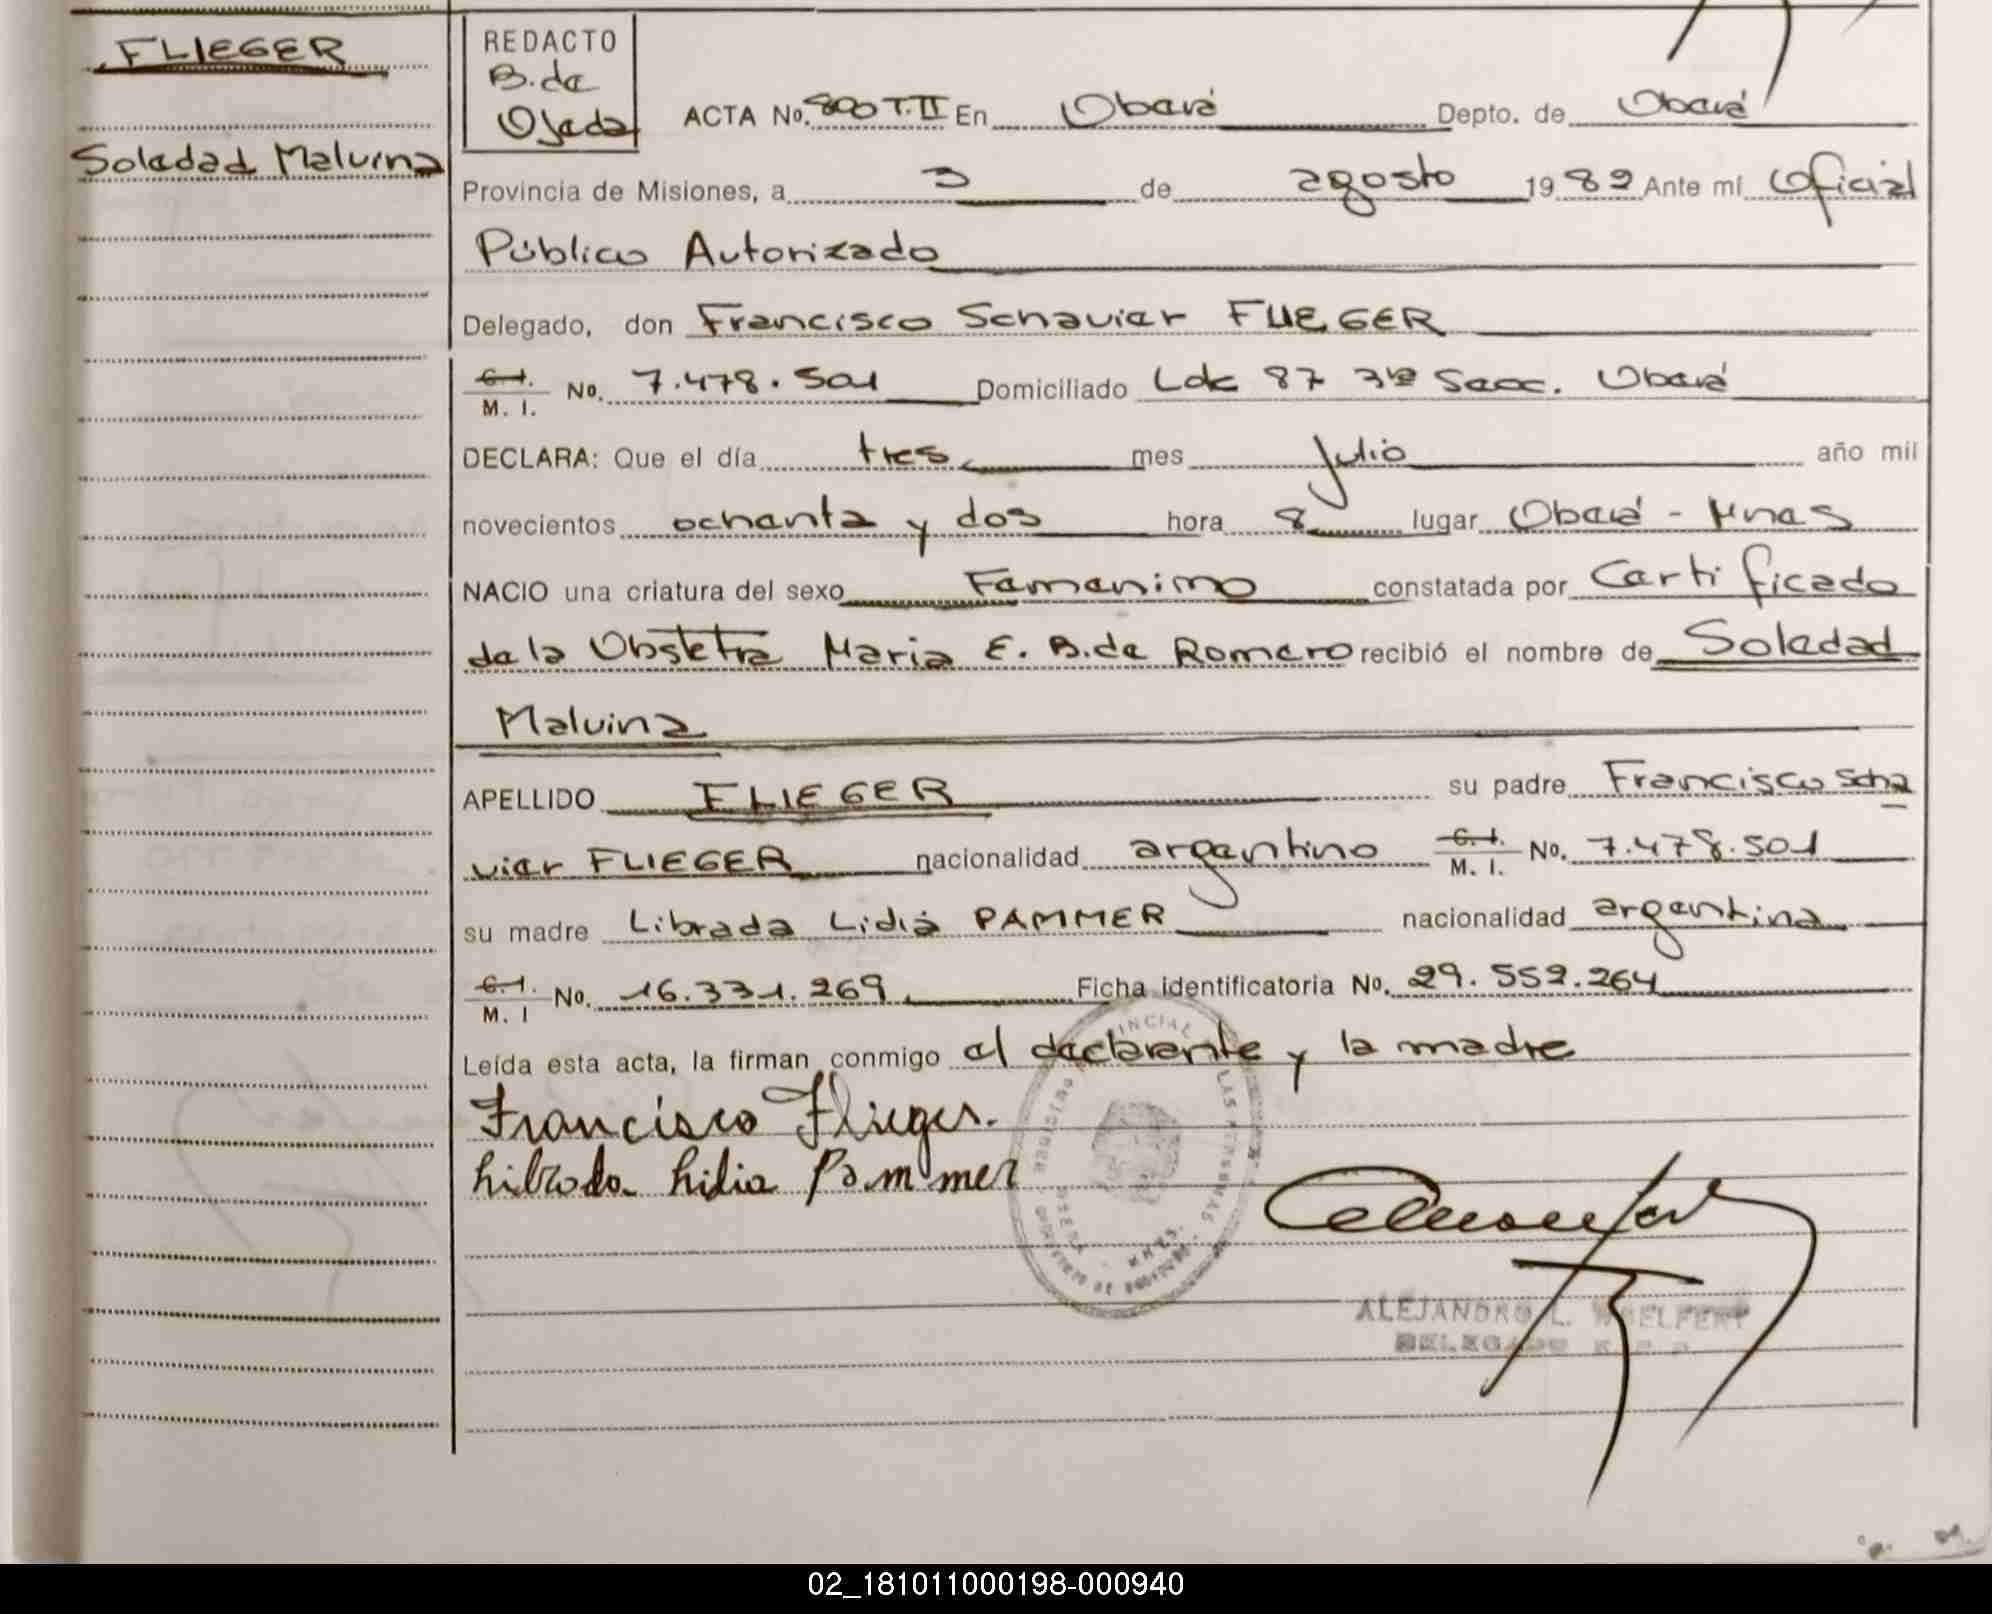 FLIEGER
Soledad Malvina
REDACTO
B. de
Ojeda
ACTA No. 800 T.II En Oberá Depto. de Oberá
Provincia de Misiones, a 3 de agosto 1982 Ante mí Oficial
Público Autorizado
Delegado, don Francisco Schavier FLIEGER
C.I. M. I. No. 7.478.501 Domiciliado Lde 87 3ra Secc. Oberá
DECLARA: Que el día tres mes Julio año mil
novecientos ochenta y dos hora 8 lugar Oberá - Mnes
NACIO una criatura del sexo Femenino constatada por Certificado
de la Obstetra Maria E. B. de Romero recibió el nombre de Soledad
Malvina
APELLIDO FLIEGER su padre Francisco Scha
vier FLIEGER nacionalidad argentino C.I. M. I. No. 7.478.501
su madre Librada Lidia PAMMER nacionalidad argentina
C.I. M. I No. 16.331.269 Ficha identificatoria No. 29.552.264
Leída esta acta, la firman conmigo el declarante y la madre
Francisco Flieger.
Librada Lidia Pammer
ALEJANDRO L.
DELEGADO
02_181011000198-000940